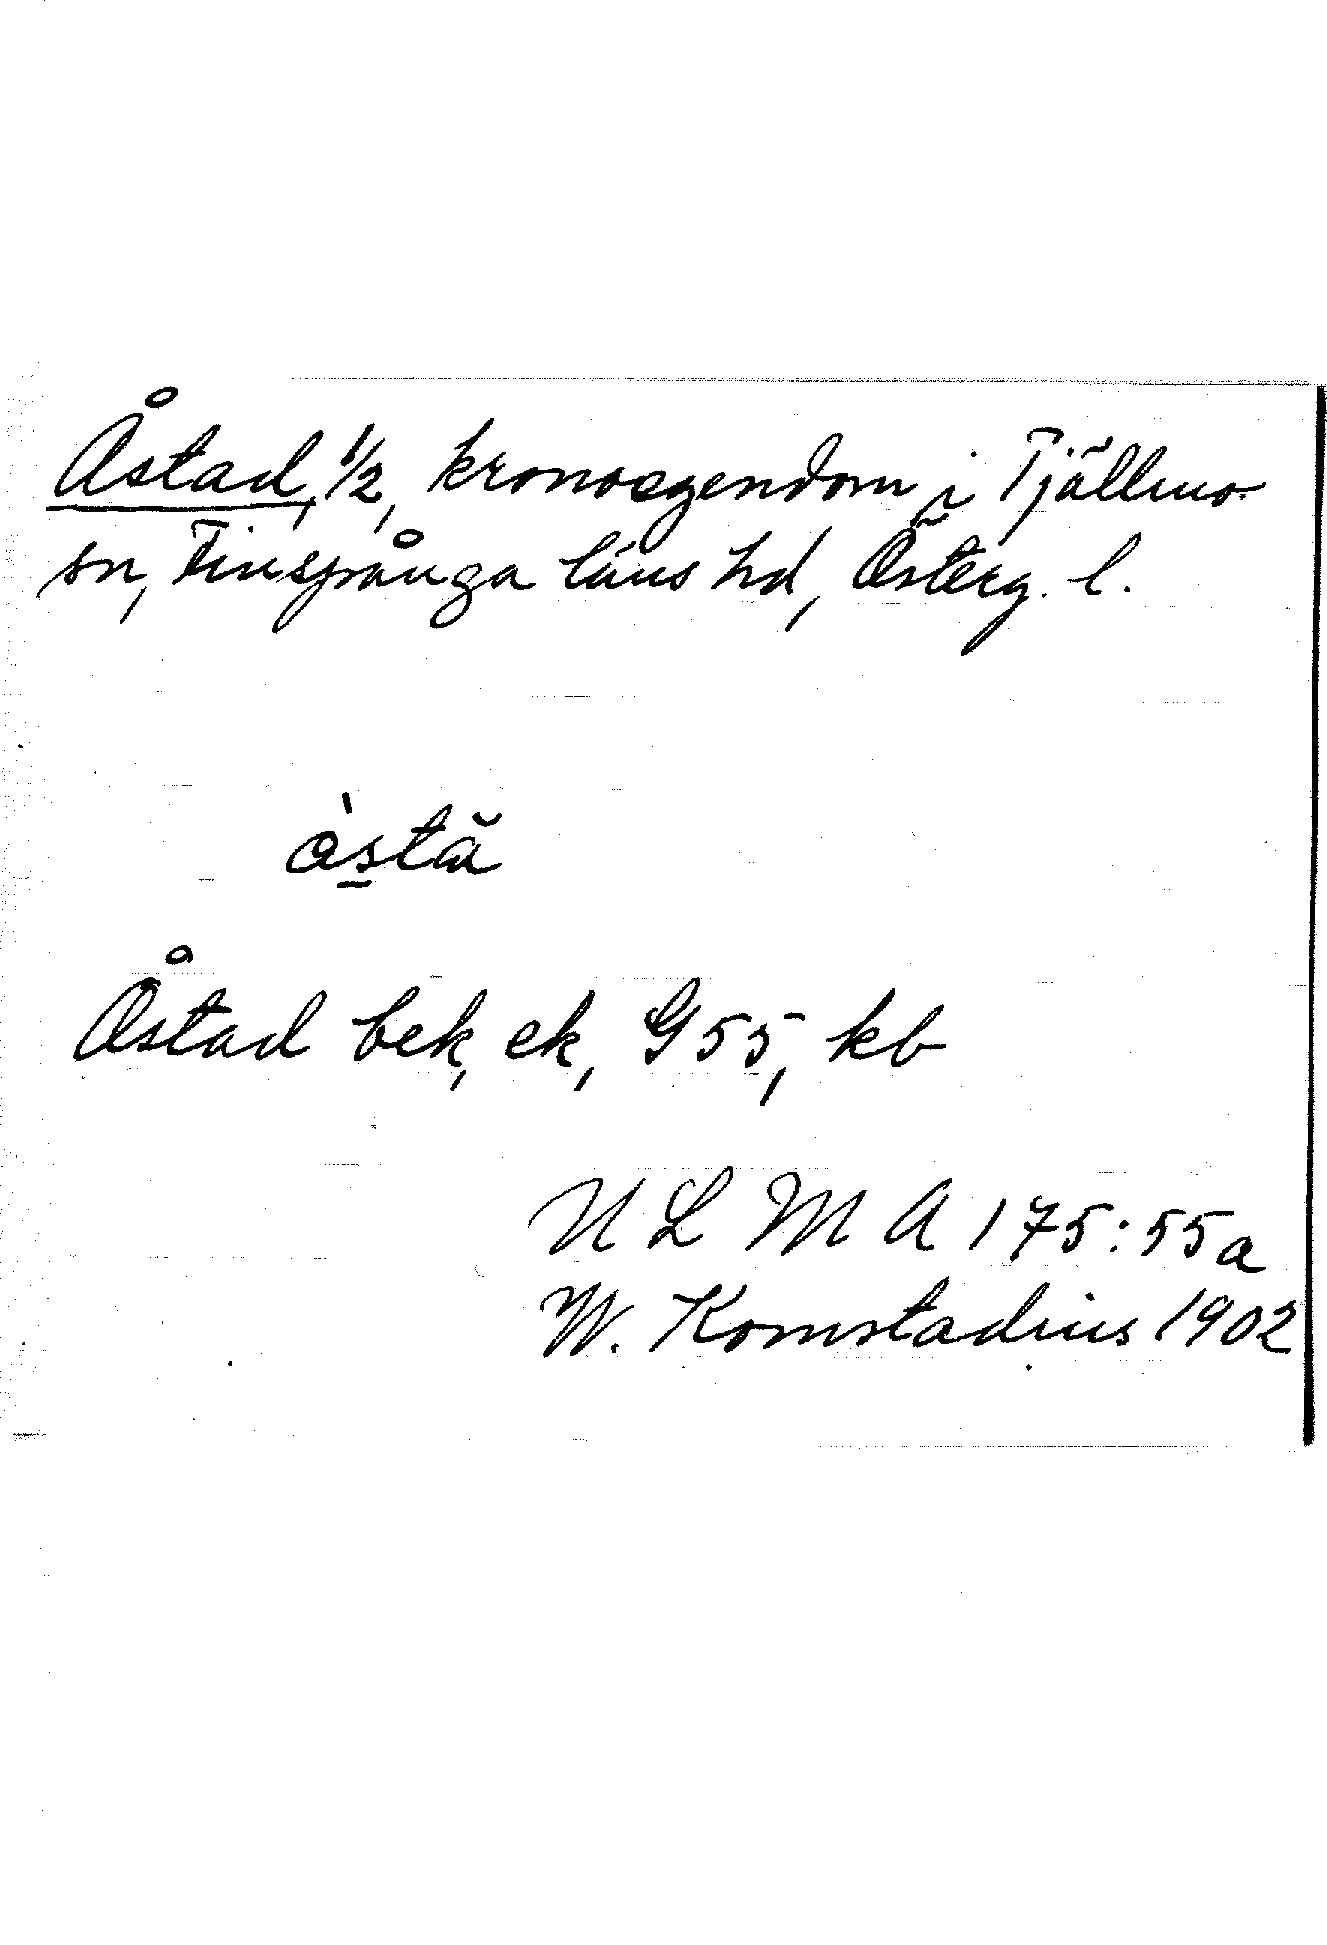 Åstad, 1/2, kronoegendom i Tjällmo
sn, Finspånga läns hd, Österg. l.
ɑ̀s̲tă
Åstad bek, ek, G 55, kb
ULMA 175:55a
W. Komstadius 1902